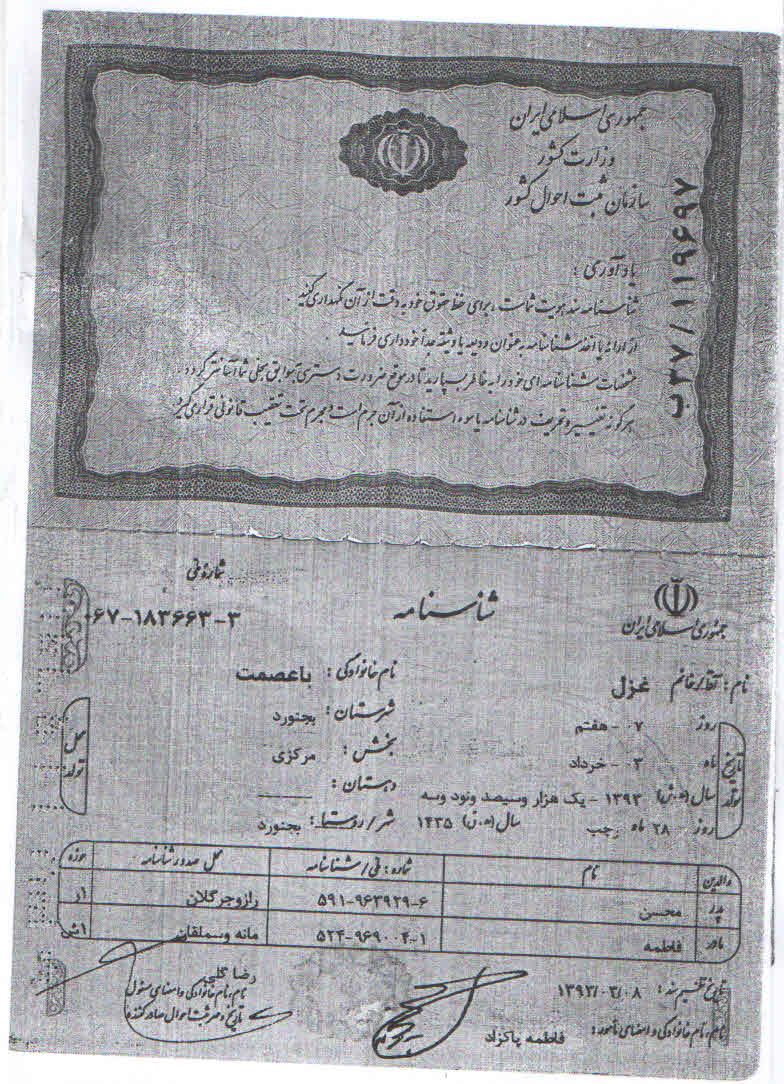 جمهوری اسلامی ایران
وزارت کشور
سازمان ثبت احوال کشور
ب۳۷/۱۱۹۶۹۷
یادآوری :
شناسنامه سند هویت شماست ، برای حفظ حقوق خود به دقت از آن نگهداری کنید .
از ارائه یا اخذ شناسنامه به عنوان ودیعه یا وثیقه جداً خودداری فرمایید .
مشخصات شناسنامه ای خود را به خاطر بسپارید تا در موقع ضرورت دسترسی به سوابق سجلی شما آسانتر گردد .
هرگونه تغییر و تحریف در شناسنامه یا سوء استفاده از آن جرم است و مجرم تحت تعقیب قانونی قرار می گیرد
جمهوری اسلامی ایران
شناسنامه
شماره ملی
۰۶۷-۱۸۳۶۶۳-۳
نام : آقا/خانم غزل
نام خانوادگی : باعصمت
تاریخ تولد
روز ۰۷ - هفتم
ماه ۰۳ - خرداد
سال (ه.ش) ۱۳۹۳ - یک هزار وسیصد ونود وسه
روز ۲۸ ماه رجب سال (ه.ق) ۱۴۳۵
محل تولد
شهرستان : بجنورد
بخش : مرکزی
دهستان : ـــــــــ
شهر/روستا : بجنورد
والدین نام شماره : ملی/شناسنامه محل صدور شناسنامه حوزه
پدر محسن ۵۹۱-۹۶۳۹۲۹-۶ رازوجرگلان ۱ر
مادر فاطمه ۵۲۴-۹۶۹۰۰۴-۱ مانه وسملقان ۱ش
تاریخ تنظیم سند : ۱۳۹۳/۰۳/۰۸
نام، نام خانوادگی و امضای مأمور : فاطمه پاکزاد
رضا گلی
نام، نام خانوادگی و امضای مسئول
تاریخ و مهر ثبت احوال صادر کننده